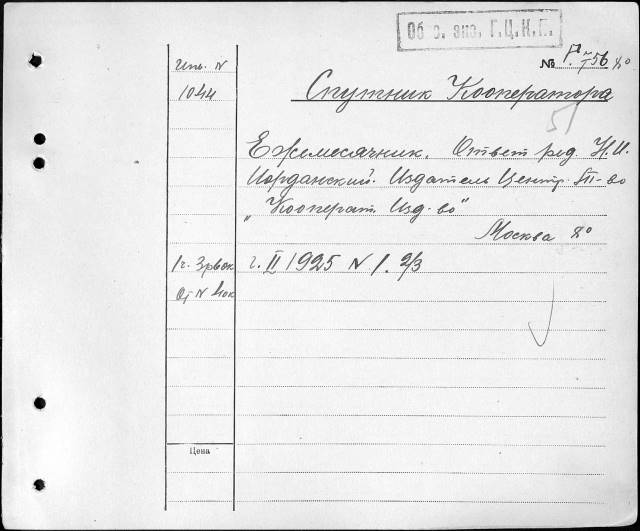 Об. э. экз. Г.Ц.К.Г.
№ Р. V/I 56 8°
Инв. N
1044
Спутник Кооператора
51
Ежемесячник. Ответ ред. Н.И.
Иорданский. Издатель Центр. т-во
"Кооперат. Изд-во"
Москва 8°
1 г. 3 рвок г. II 1925 N 1. 2/3
От N 40к
Цена